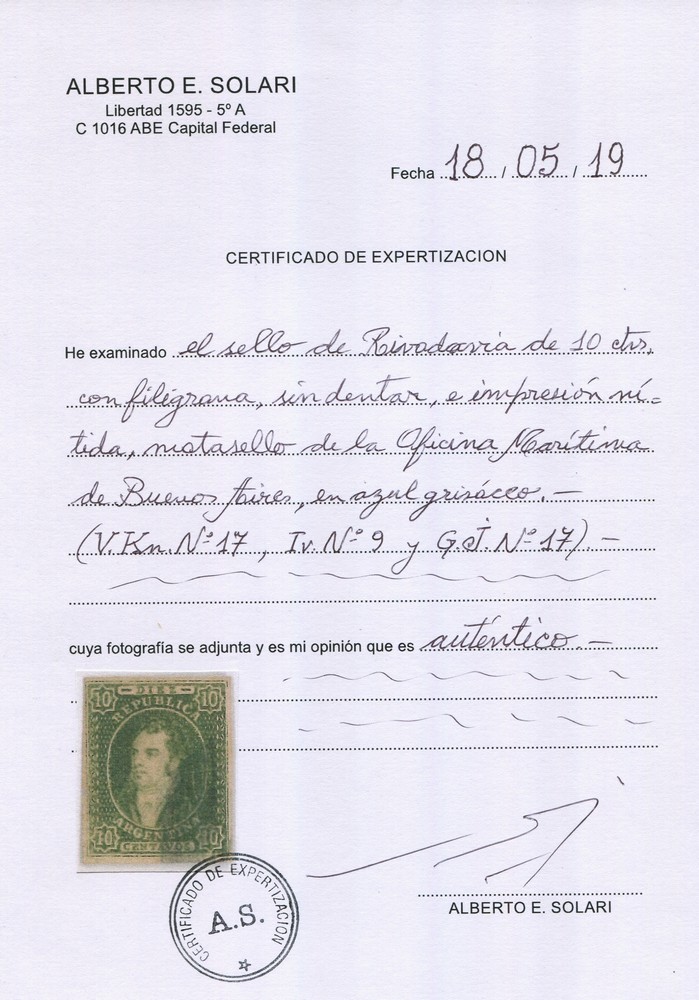 ALBERTO E. SOLARI
Libertad 1595 - 5º A
C 1016 ABE Capital Federal
Fecha 18 / 05 / 19
CERTIFICADO DE EXPERTIZACION
He examinado el sello de Rivadavia de 10 ctvs.
con filigrana, sin dentar, e impresión ní=
tida, matasello de la Oficina Marítima
de Buenos Aires, en azul grisáceo. —
(V. Kn. Nº 17, Iv. Nº 9 y G.J. Nº 17). —
cuya fotografía se adjunta y es mi opinión que es auténtico. —
10 DIEZ 10
REPUBLICA
ARGENTINA
10 CENTAVOS 10
CERTIFICADO DE EXPERTIZACION
A.S.
ALBERTO E. SOLARI